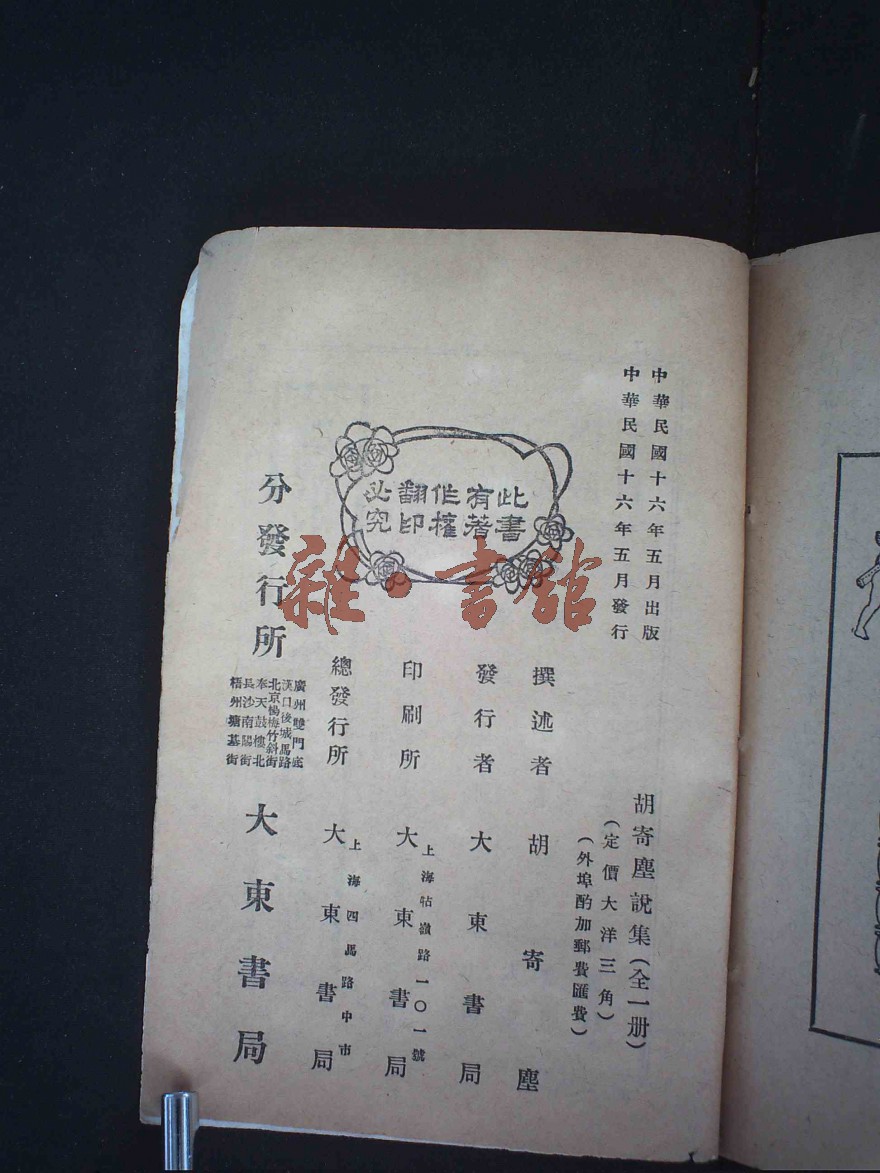 中華民國十六年五月出版
中華民國十六年五月發行
胡寄塵說集(全一册)
(定價大洋三角)
(外埠酌加郵費匯費)
此書
有著
作權
翻印
必究
撰述者 胡寄塵
發行者 大東書局
印刷所 上海牯嶺路一〇一號 大東書局
總發行所 上海四馬路中市 大東書局
分發行所
廣州雙門底
漢口後城馬路
北京楊梅竹斜街
奉天鼓樓北
長沙南陽街
梧州塘基街
大東書局
雜·書館